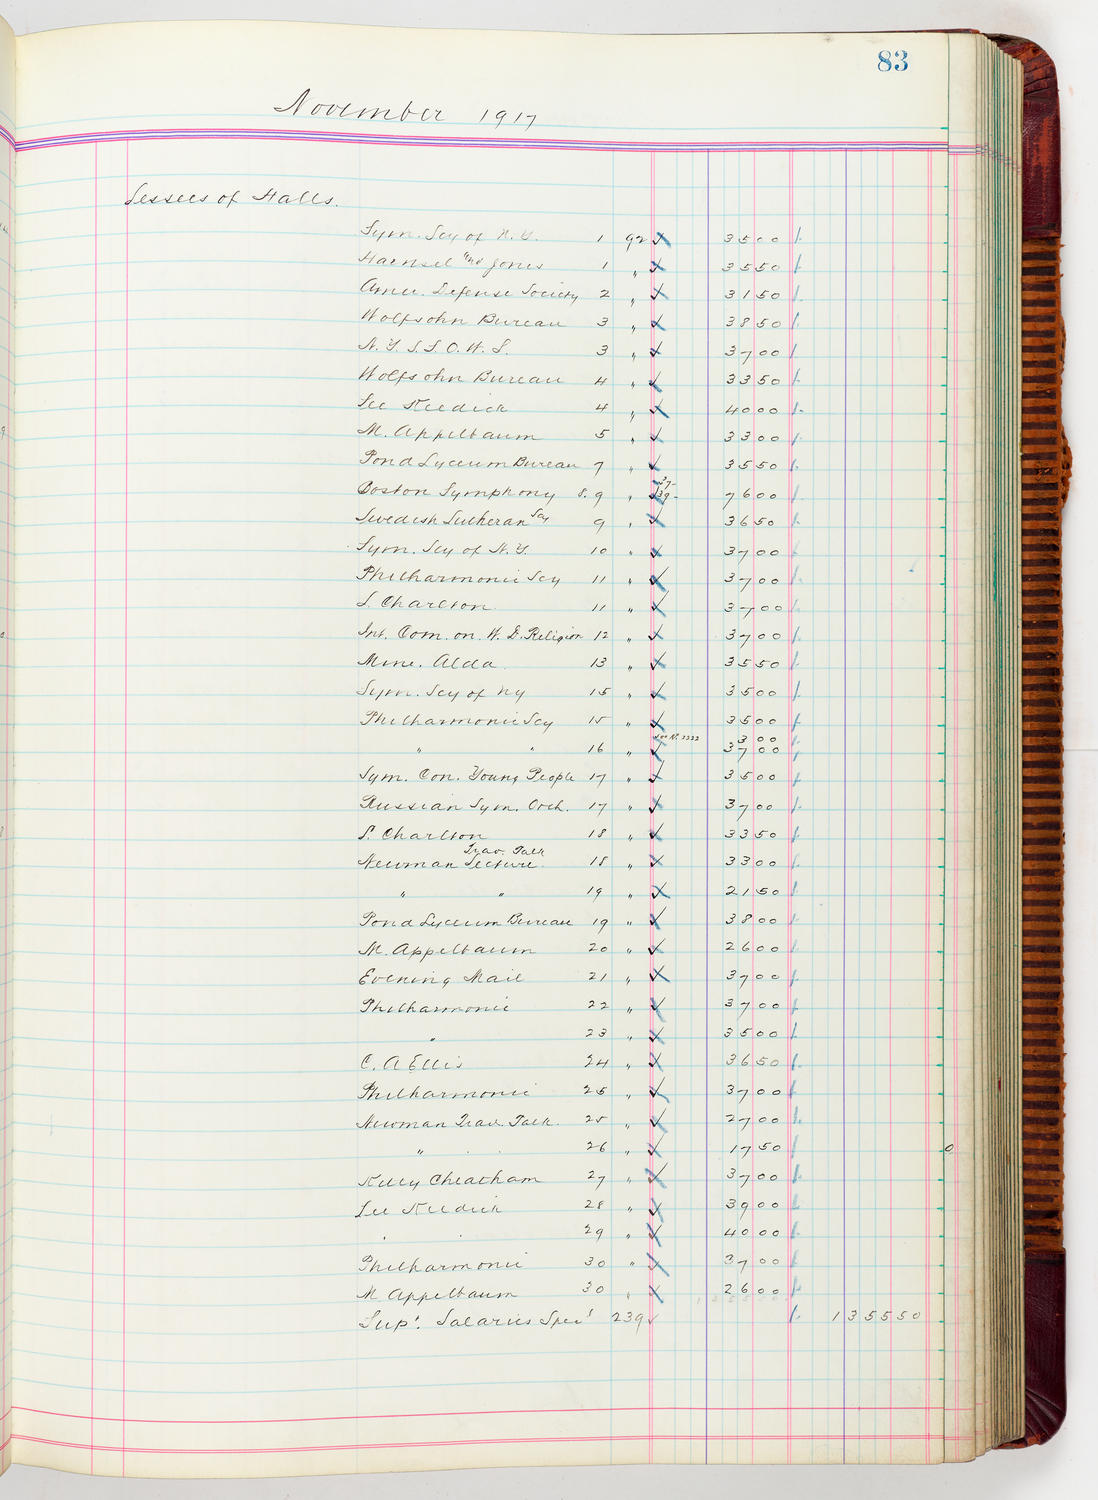 83
November 1917
Lessees of Halls.
Sym. Scy of N.Y. 1 92 3500
Haensel and Jones 1 " 3550
Amer. Defense Society 2 " 3150
Wolfsohn Bureau 3 " 3850
N.Y.S.S.O.W.S. 3 " 3700
Wolfsohn Bureau 4 " 3350
Lee Keedick 4 " 4000
M. Appelbaum 5 " 3300
Pond Lyceum Bureau 7 " 3550
Boston Symphony 8.9 " 37- 39- 7600
Swedish Lutheran Scy 9 " 3650
Sym. Scy of N.Y. 10 " 3700
Philharmonic Scy 11 " 3700
L. Charlton 11 " 3700
Int. Com. on W. D. Religion 12 " 3700
Mme. Alda 13 " 3550
Sym. Scy of NY 15 " 3500
Philharmonic Scy 15 " 3500
300
" " 16 " 3700
Sym. Con. Young People 17 " 3500
Russian Sym. Orch. 17 " 3700
L. Charlton 18 " 3350
Newman Lecture Trav. Talk 18 " 3300
" " 19 " 2150
Pond Lyceum Bureau 19 " 3800
M. Appelbaum 20 " 2600
Evening Mail 21 " 3700
Philharmonic 22 " 3700
" 23 " 3500
C. A Ellis 24 " 3650
Philharmonic 25 " 3700
Newman Trav. Talk. 25 " 2700
" 26 " 1750
Kitty Cheatham 27 " 3700
Lee Keedick 28 " 3900
" " 29 " 4000
Philharmonic 30 " 3700
M. Appelbaum 30 " 2600
Sup't. Salaries Spec'l 239 135550